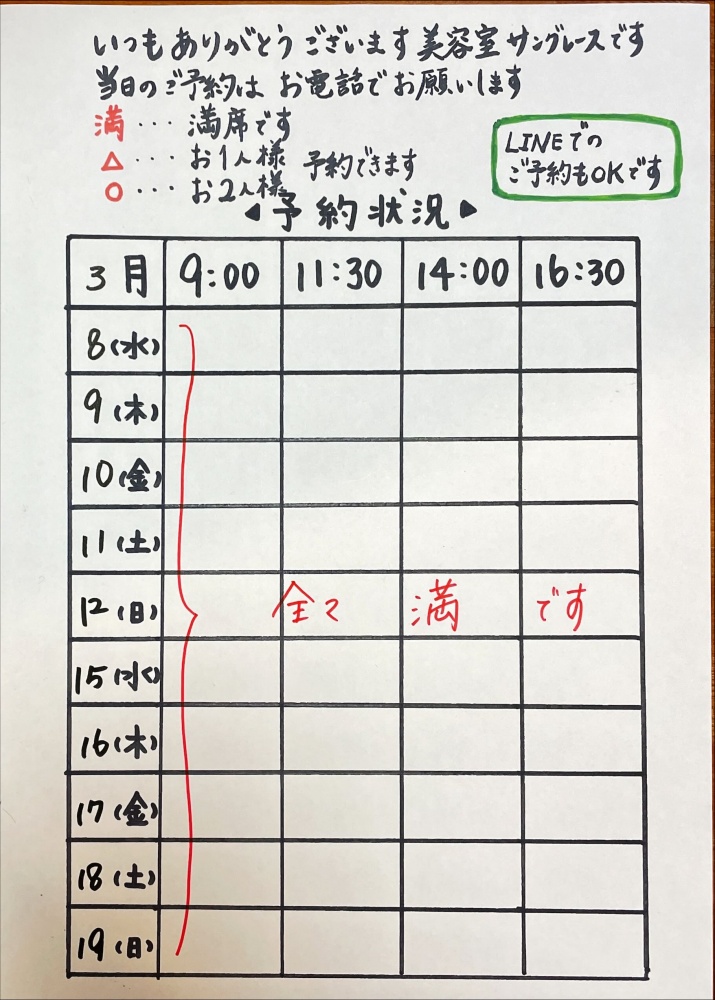 いつもありがとうございます美容室サングレースです
当日のご予約は お電話でお願いします
満・・・満席です
△・・・お1人様 予約できます
○・・・お2人様
LINEでの
ご予約もOKです
◀予約状況▶
3月 9:00 11:30 14:00 16:30
8(水)
9(木)
10(金)
11(土)
12(日) 全て 満 です
15(水)
16(木)
17(金)
18(土)
19(日)